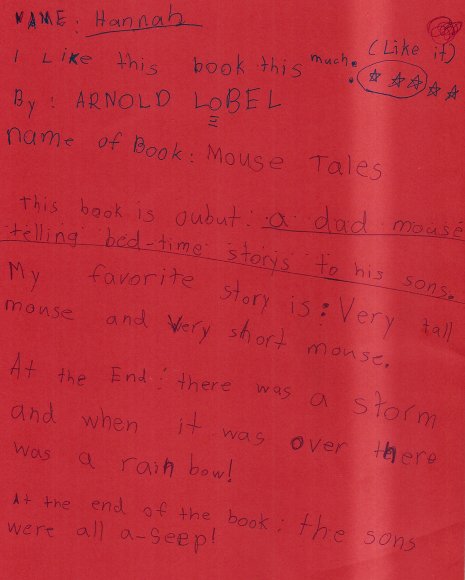 NAME: Hannah
(Like it)
I Like this book this much:
By: ARNOLD LOBEL
name of Book: Mouse Tales
this book is oubut: a dad mouse
telling bed-time storys to his sons.
My favorite story is: Very tall
mouse and Very short mouse.
At the End: there was a storm
and when it was over there
was a rainbow!
At the end of the book: the sons
were all a-seep!